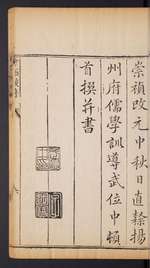 崇禎改元中秋日直隸揚
州府儒學訓導武位中頓
首撰并書